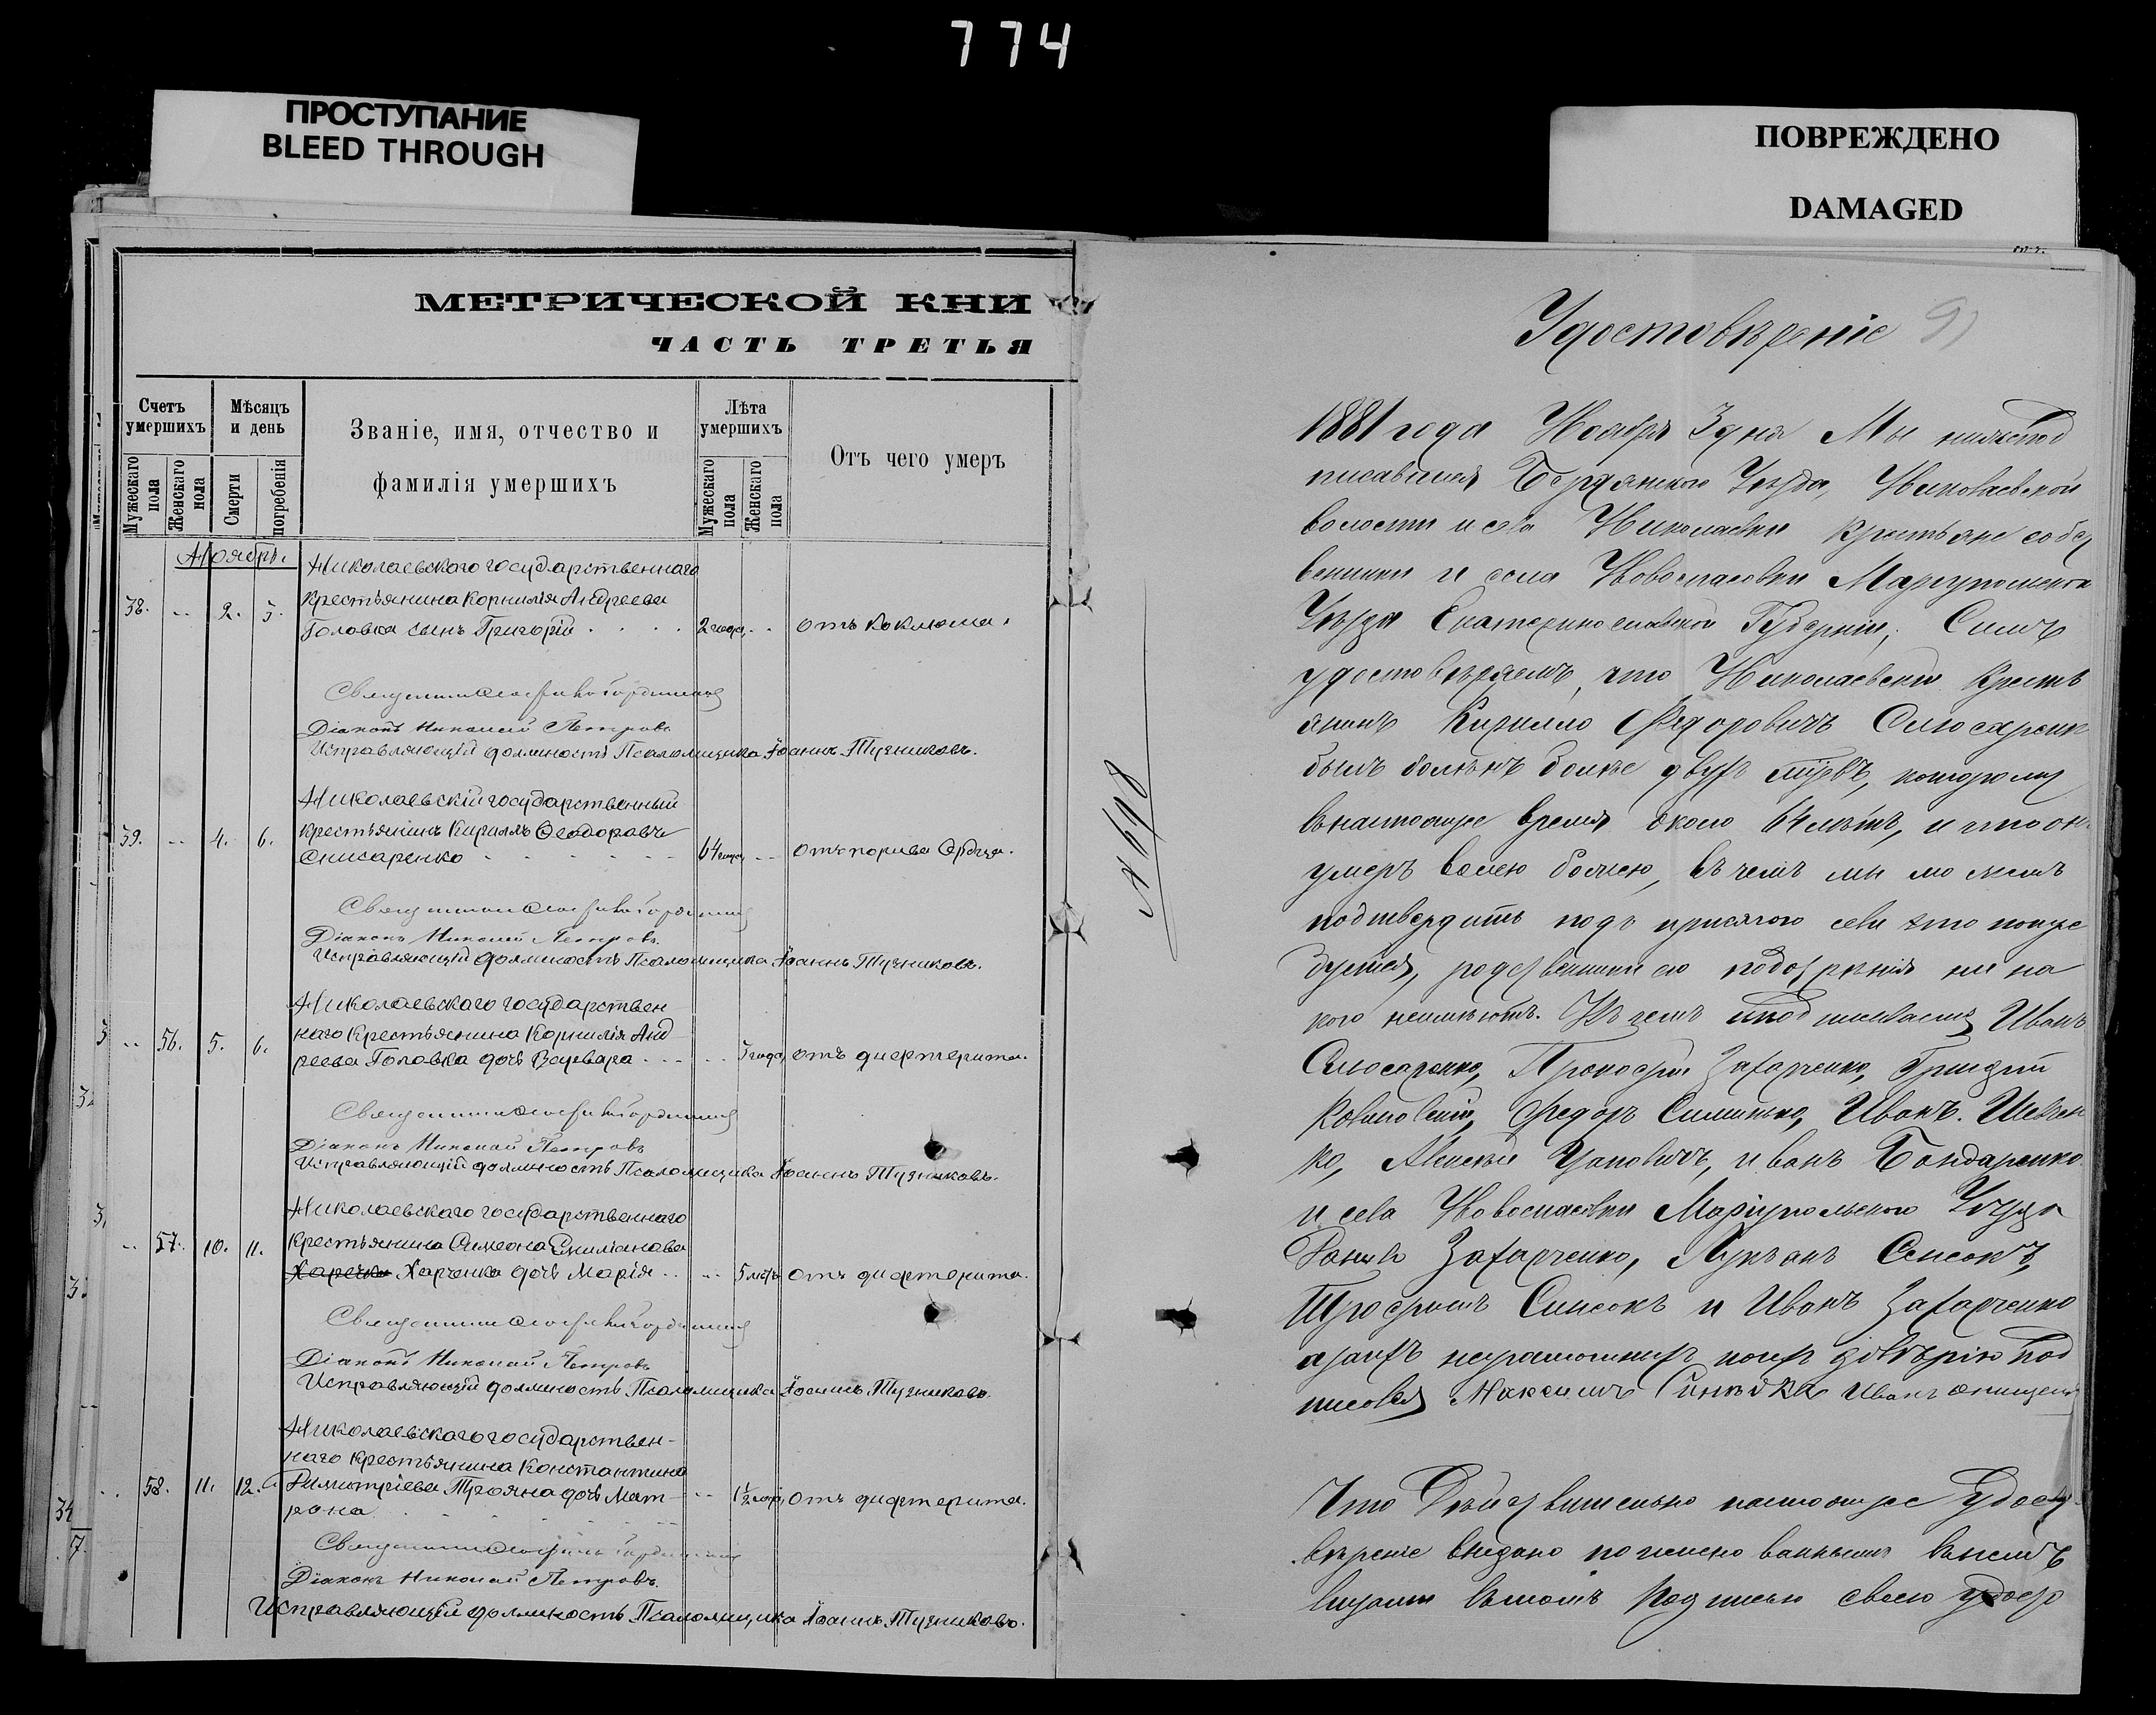 774
ПРОСТУПАНИЕ
BLEED THROUGH
ПОВРЕЖДЕНО
DAMAGED
МЕТРИЧЕСКОЙ КНИ
ЧАСТЬ ТРЕТЬЯ
Счетъ умершихъ
Мужескаго пола
Женскаго пола
Мѣсяцъ и день
Смерти
погребенія
Званіе, имя, отчество и
фамилія умершихъ
Лѣта умершихъ
Мужескаго пола
Женскаго пола
Отъ чего умеръ
Ноябрь.
Николаевскаго государственнаго
крестьянина Корнилія Андреева
38. -- 2. 3. Головка сынъ Григорій . . . . 2 года -- отъ коклюша.
Діаконъ Николай Петровъ
Исправляющій должность Псаломщика Іоаннъ Тузниковъ.
Николаевскій государственный
39. -- 4. 6. крестьянинъ Кириллъ Ѳеодоровъ
Слисаренко - - - - - - 64 года -- отъ порыва сердца.
Діаконъ Николай Петровъ.
Исправляющій должность Псаломщика Іоаннъ Тузниковъ.
Николаевскаго государствен-
наго крестьянина Корнилія Анд-
-- 56. 5. 6. реева Головка дочь Варвара - - - -- года отъ дифтерита.
Діаконъ Николай Петровъ
Исправляющій должность Псаломщика Іоаннъ Тузниковъ.
Николаевскаго государственнаго
-- 57. 10. 11. крестьянина Симеона Емиліанова
Харченка дочь Марія . . -- 5 лѣтъ отъ дифтерита.
Діаконъ Николай Петровъ
Исправляющій должность Псаломщика Іоаннъ Тузниковъ.
Николаевскаго государствен-
наго крестьянина Константина
-- 58. 11. 12. Димитріева Трояна дочь Мат- -- 1½ года отъ дифтерита.
рона
Діаконъ Николай Петровъ.
Исправляющій должность Псаломщика Іоаннъ Тузниковъ.
№ 698
Удостовѣреніе 91
1881 года Ноября 3 дня Мы нижепод
писавшіеся Бердянскаго Уѣзда, Николаевской
волости и села Николаевки Крестьяне собст
венники и села Новоспасовки Маріупольскаго
Уѣзда Екатеринославской Губерніи, Симъ
удостовѣряемъ, что Николаевскій Кресть
янинъ Кирилло Федоровичъ Слюсаренк
былъ болѣнъ болѣе двухъ, которому
внастоящее время около 64 лѣтъ, и что он
умеръ волею божею, въ чемъ мы можемъ
подтвердить подъ присягою если это потре
буется, родственники его подозрѣнія ни на
кого неимѣютъ. Въ чемъ и подписываемся Иванъ
Слюсаренко, Прокофій Захарченко, Григорій
Федоръ Симинько, Иванъ Шевчен
ко, Алексѣй, Иванъ Бондаренко
и села Новоспасовки Маріупольскаго Уѣзда
Данило Захарченко, Лукьянъ Сенсокъ,
Трофимъ Синсокъ и Иванъ Захарченко
а за нихъ неграмотныхъ поихъ довѣрію под
писовся Максимъ Иванъ
Что Дѣйствительно настоящее Удосто
вѣреніе выдано поименованнымъ въ немъ
лицамъ въ томъ подписью своею удосто